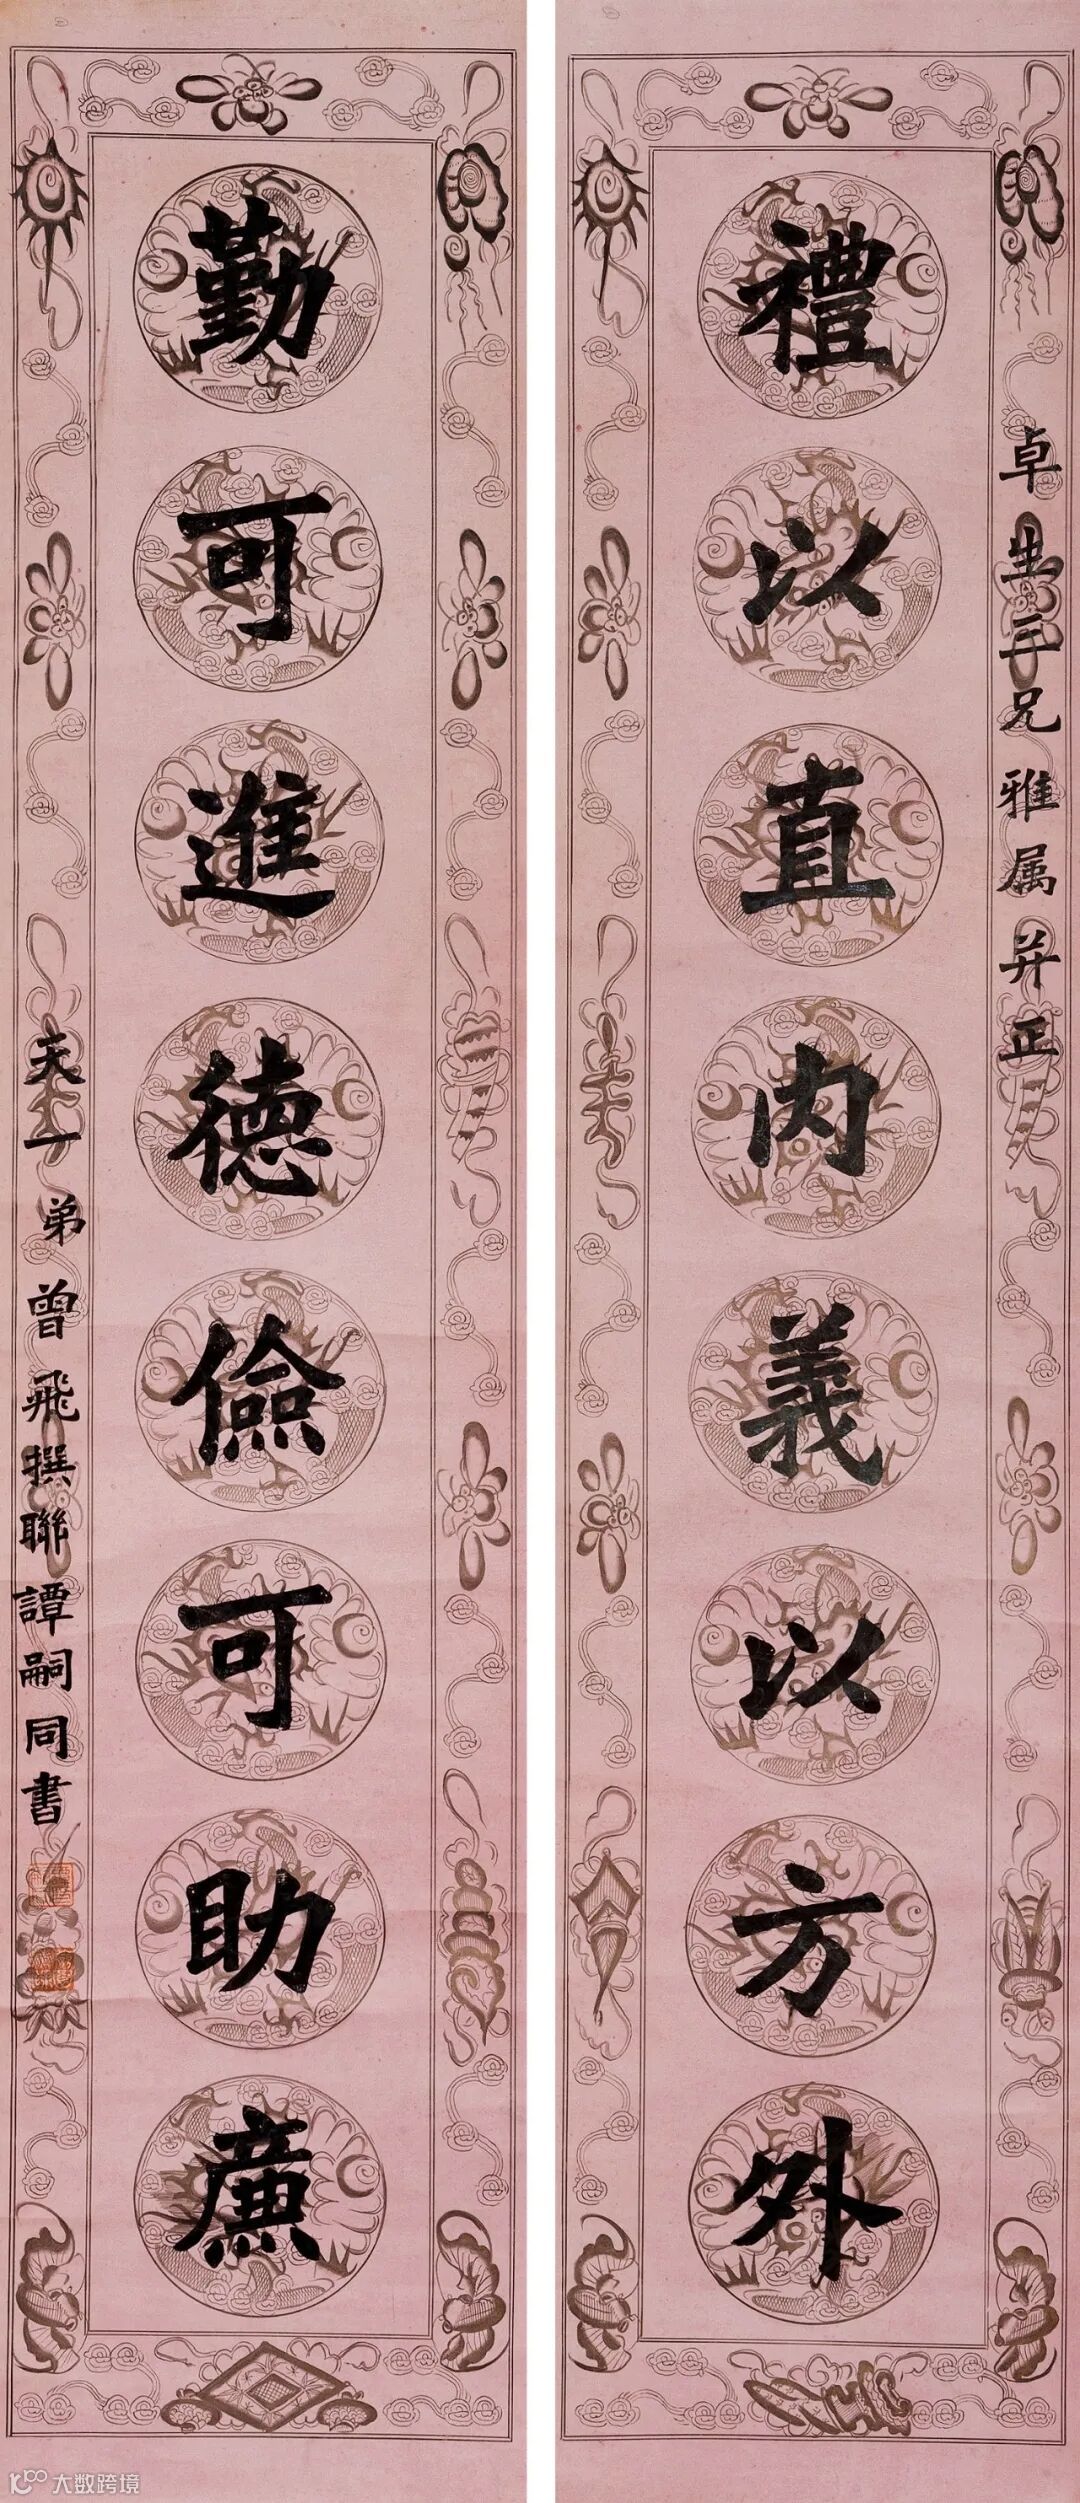 卓生三兄雅属并正
禮以直内義以方外
勤可進德儉可助廉
天一弟曾飛撰聯譚嗣同書
大数跨境